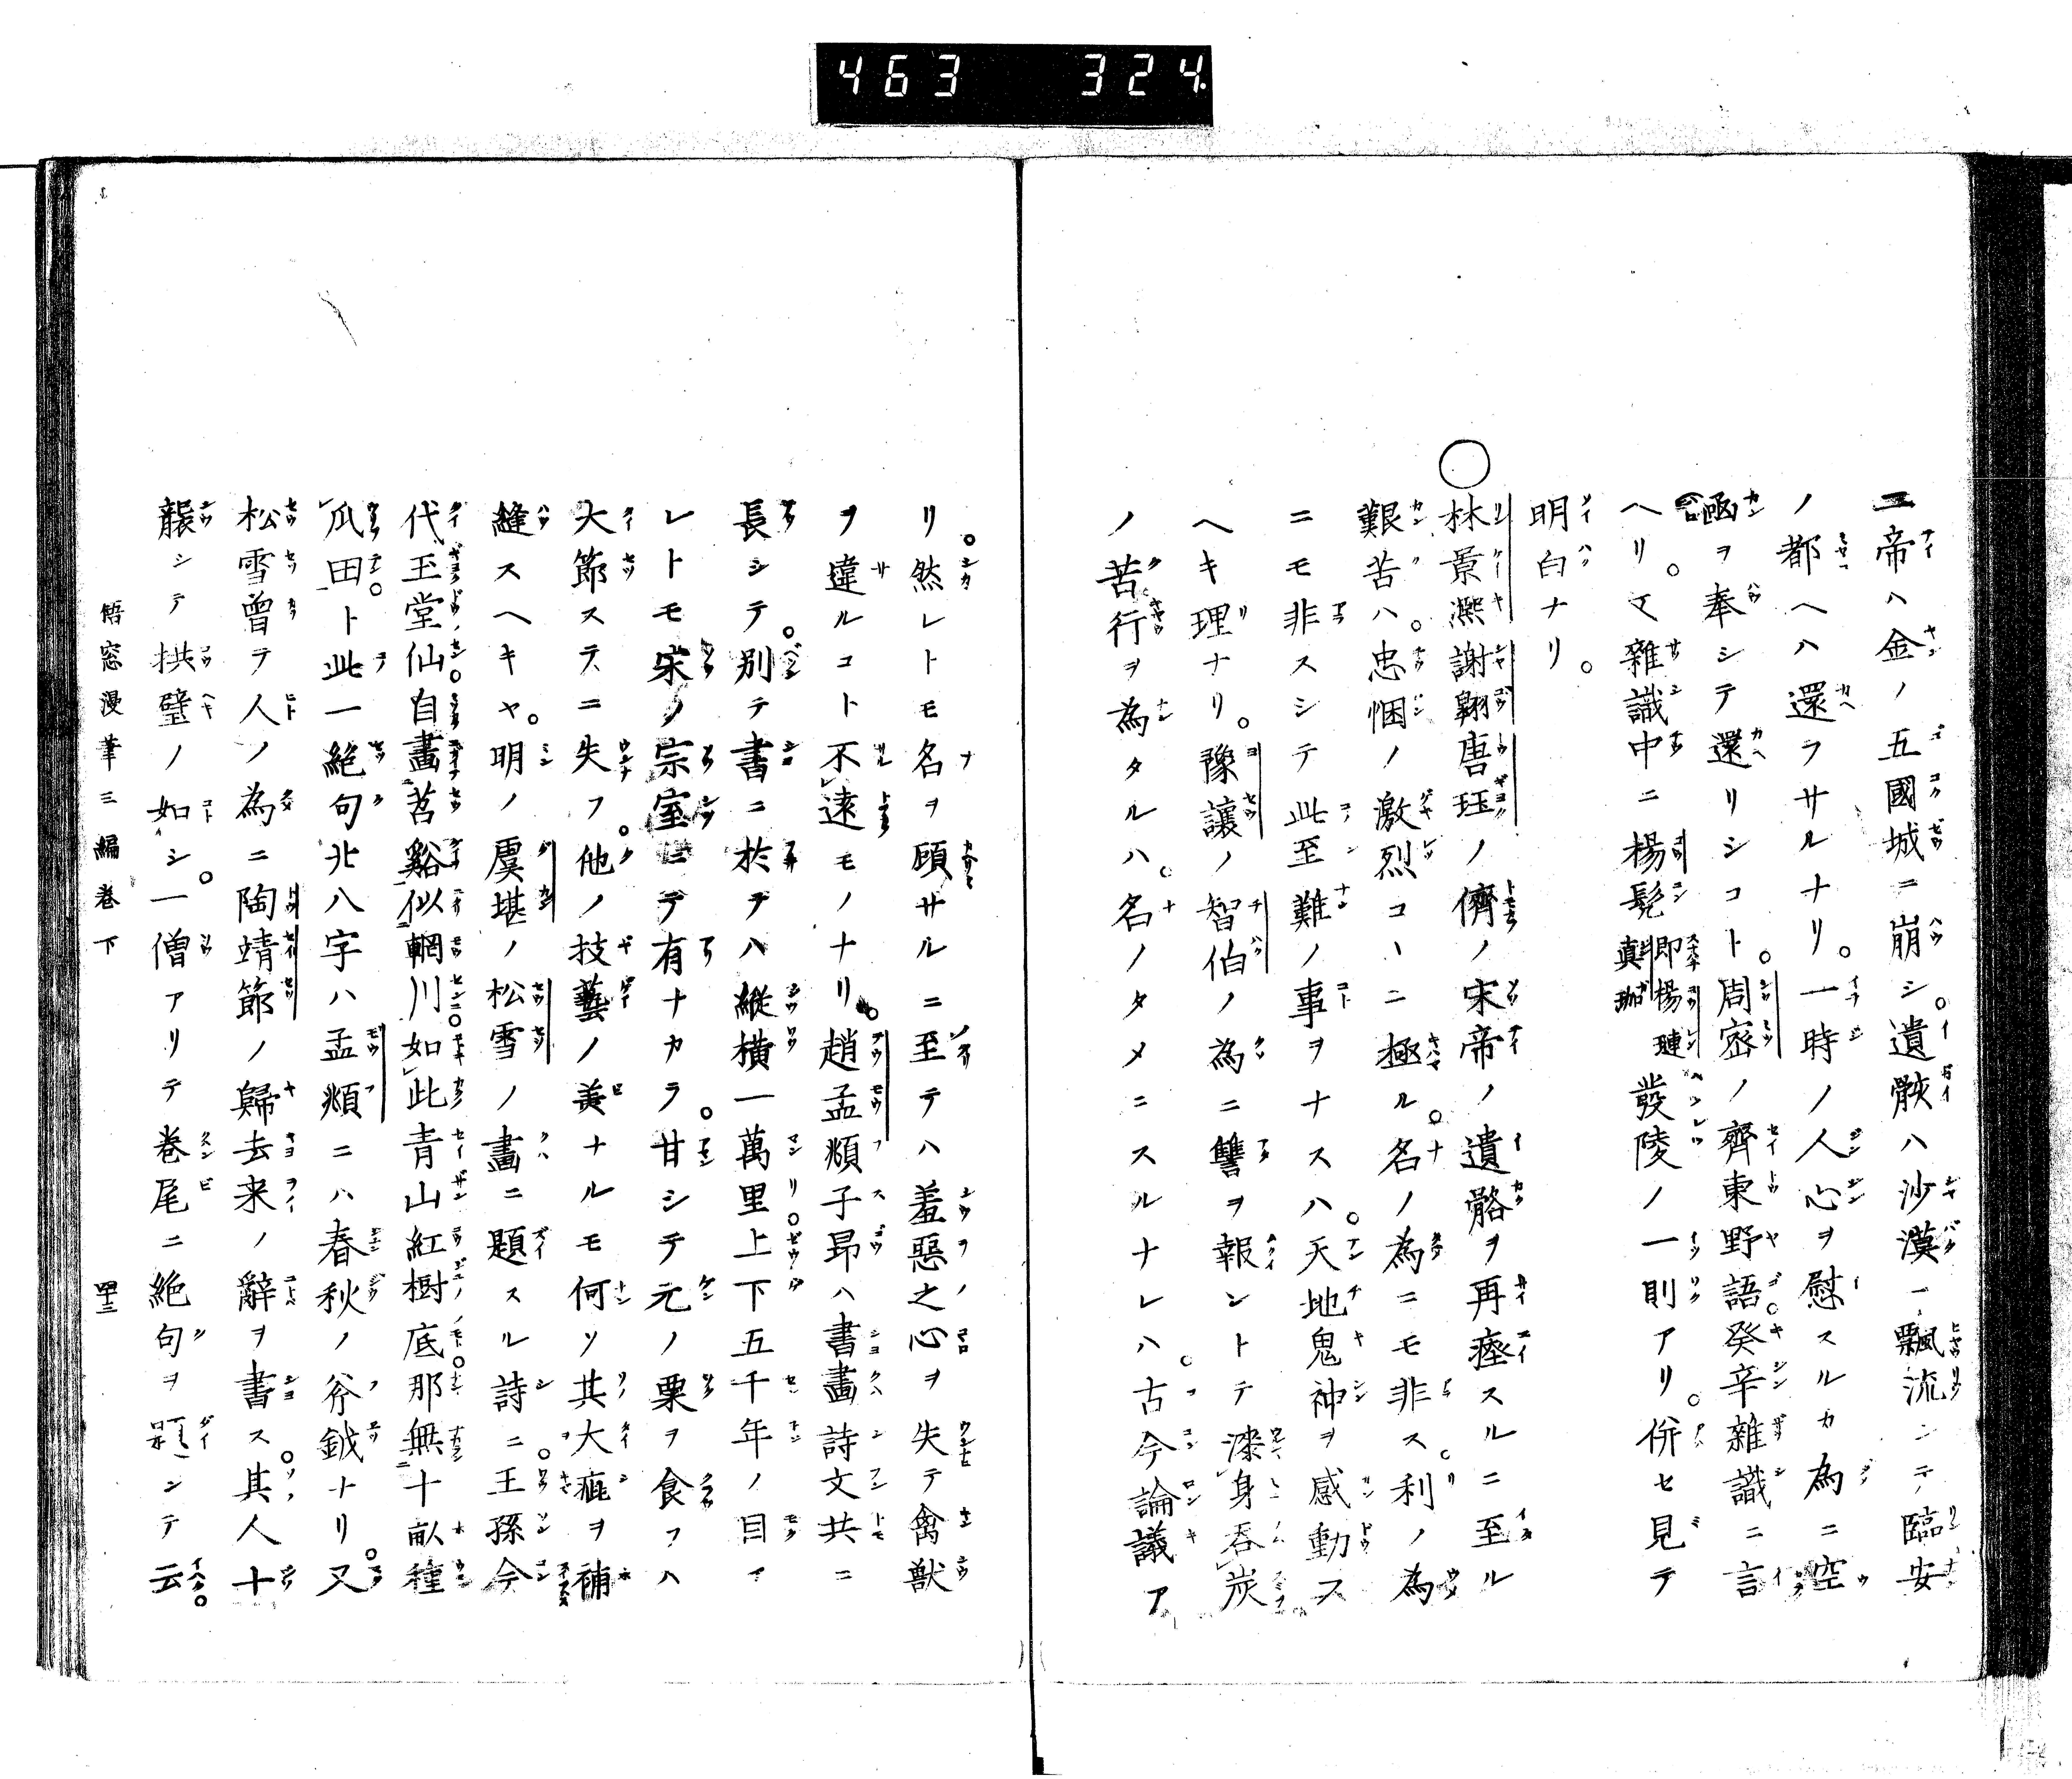 463 324
二帝ハ金ノ五國城ニ崩シ。遺骸ハ沙漠ニ飄流シテ臨安
ノ都ヘハ還ラサルナリ。一時ノ人心ヲ慰スルカ為ニ空
函ヲ奉シテ還リシコト。周密ノ齊東野語。癸辛雜識ニ言
ヘリ。又雜識中ニ楊髡即楊璉真珈發陵ノ一則アリ。併セ見テ
明白ナリ。
○林景凞謝翺唐珏ノ儕ノ宋帝ノ遺骼ヲ再瘞スルニ至ル
艱苦ハ。忠悃ノ激烈コヽニ極ル。名ノ為ニモ非ス。利ノ為
ニモ非スシテ此至難ノ事ヲナスハ。天地鬼神ヲ感動ス
ヘキ理ナリ。豫讓ノ智伯ノ為ニ讐ヲ報ントテ漆身呑炭
ノ苦行ヲ為タルハ。名ノタメニスルナレハ。古今論議ア
リ。然レトモ名ヲ頋サルニ至テハ羞惡之心ヲ失テ禽獣
ヲ違ルコト不遠モノナリ。趙孟頫子昻ハ書畫詩文共ニ
長シテ。别テ書ニ於テハ縱横一萬里。上下五千年ノ目ア
レトモ宋ノ宗室ニテ有ナカラ。甘シテ元ノ粟ヲ食フハ
大節ステニ失フ。他ノ技藝ノ美ナルモ何ソ其大疵ヲ補
縫スヘキヤ。明ノ虞堪ノ松雪ノ畫ニ題スル詩ニ。王孫今
代玉堂仙。自畫苕谿似輞川。如此青山紅樹底。那無十畝種
瓜田。ト此一絶句廿八字ハ孟頫ニハ春秋ノ斧鉞ナリ。又
松雪曾テ人ノ為ニ陶靖節ノ歸去来ノ辭ヲ書ス。其人十
襲シテ拱璧ノ如シ。一僧アリテ巻尾ニ絶句ヲ題シテ云。
梧窓漫筆三編巻下 四十三